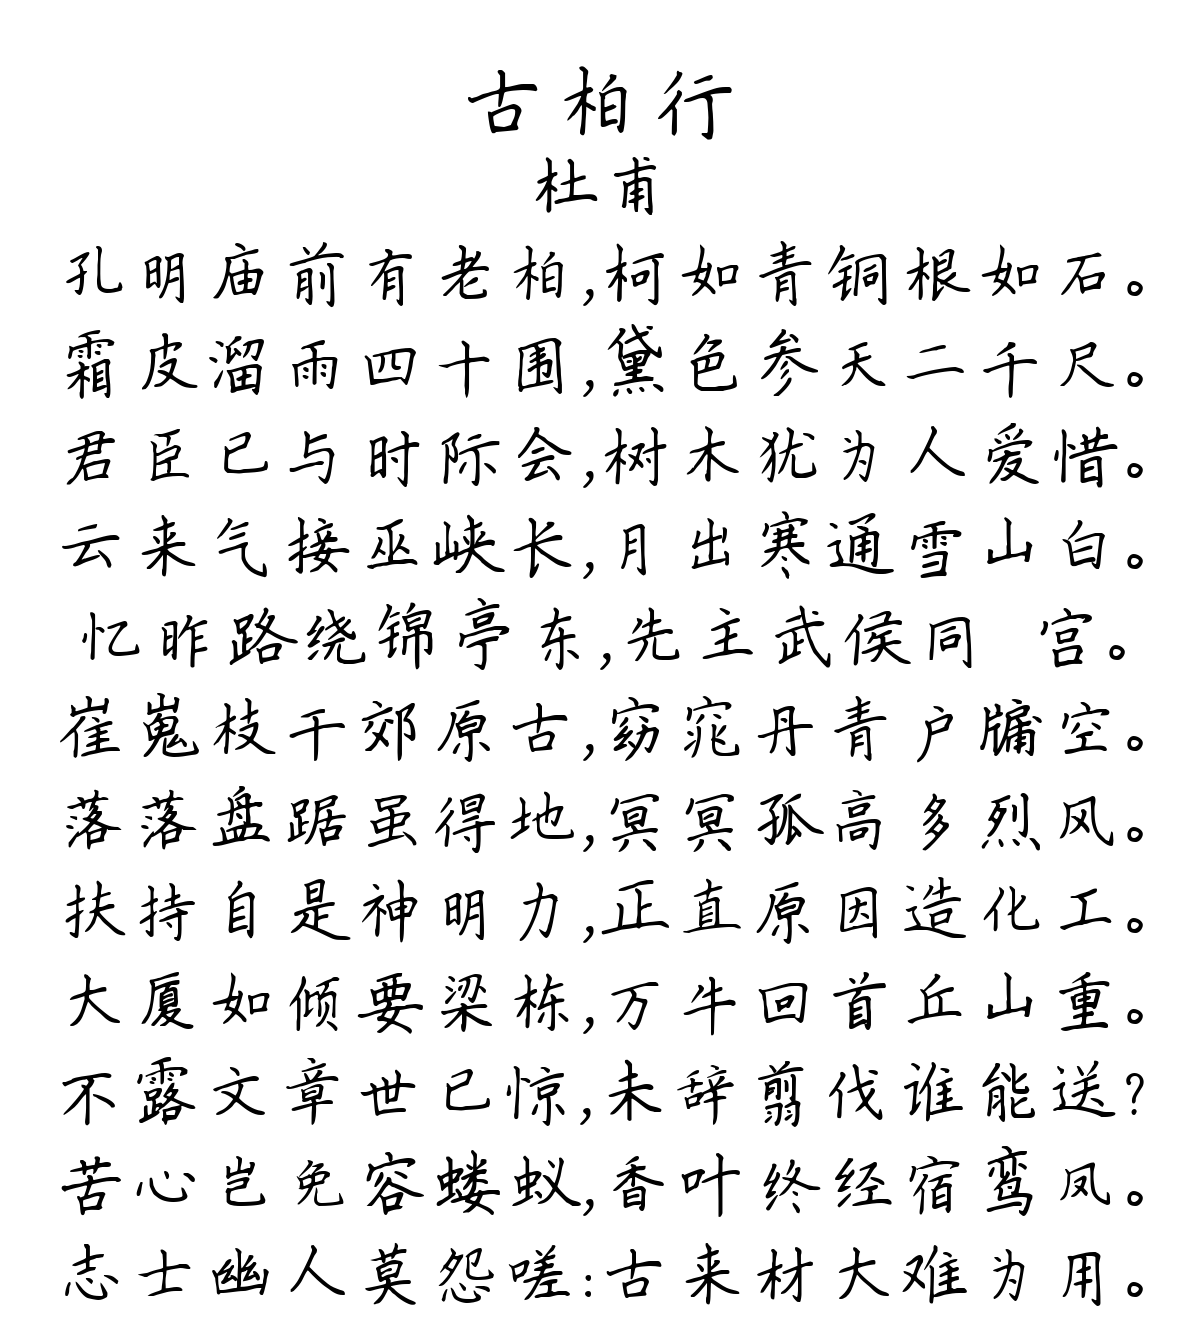 古柏行
杜甫
孔明庙前有老柏,柯如青铜根如石。
霜皮溜雨四十围,黛色参天二千尺。
君臣已与时际会,树木犹为人爱惜。
云来气接巫峡长,月出寒通雪山白。
忆昨路绕锦亭东,先主武侯同 宫。
崔嵬枝干郊原古,窈窕丹青户牖空。
落落盘踞虽得地,冥冥孤高多烈风。
扶持自是神明力,正直原因造化工。
大厦如倾要梁栋,万牛回首丘山重。
不露文章世已惊,未辞翦伐谁能送?
苦心岂免容蝼蚁,香叶终经宿鸾凤。
志士幽人莫怨嗟:古来材大难为用。